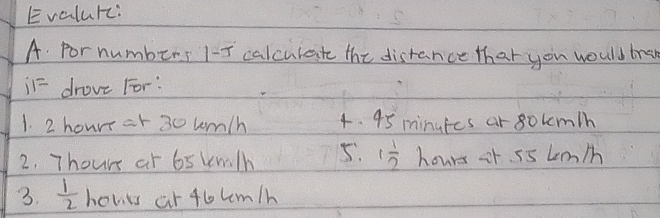 Evalute:
A. For numbers 1-5 calculate the distance that you would
if drove For:
1. 2 hours at 30 km/h
4. 45 minutes at 80 km/h
2. 7 hours at 65 km/h
5. 1 1/2 hours at 55 km/h
3. 1/2 hours at 46 km/h